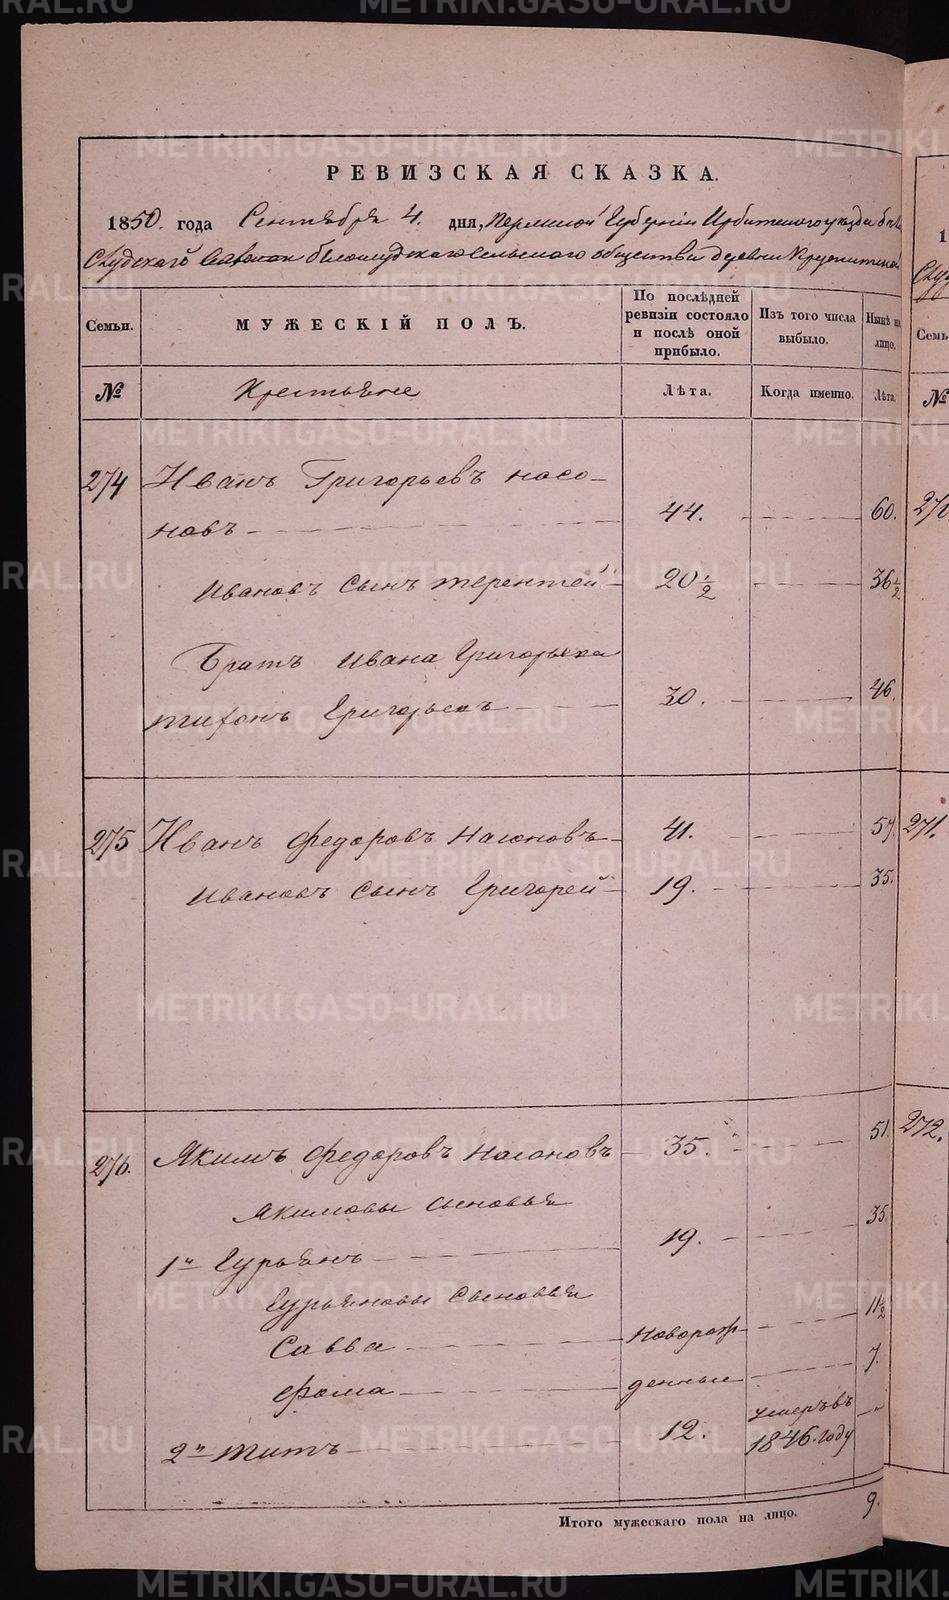 РЕВИЗСКАЯ СКАЗКА.
1850. года Сентября 4. дня, Пермской Губерніи Ирбитскаго уѣзда Бѣло
Слудскаго Сельскаго общества деревни
Семьи.
МУЖЕСКІЙ ПОЛЪ.
По послѣдней ревизіи состояло и послѣ оной прибыло.
Изъ того числа выбыло.
Нынѣ на лицо.
№
Крестьяне
Лѣта.
Когда именно.
Лѣта.
274 Иванъ Григорьевъ Насо-
новъ 44. 60.
Ивановъ сынъ Терентей 20 1/2 36 1/2
Братъ Ивана Григорьева
Тифонъ Григорьевъ 30. 46.
275 Иванъ Федоровъ Насоновъ 41. 57.
Ивановъ сынъ Григорей 19. 35.
276. Якимъ Федоровъ Насоновъ 35. 51.
Якимовы сыновья
1й Гурьянъ 19. 35.
Гурьяновы сыновья
Савва новорож- 11 1/2
Фома денные 7.
2й Титъ 12. умеръ въ 1846. году
Итого мужескаго пола на лицо. 9.
271.
272.
METRIKI.GASO-URAL.RU